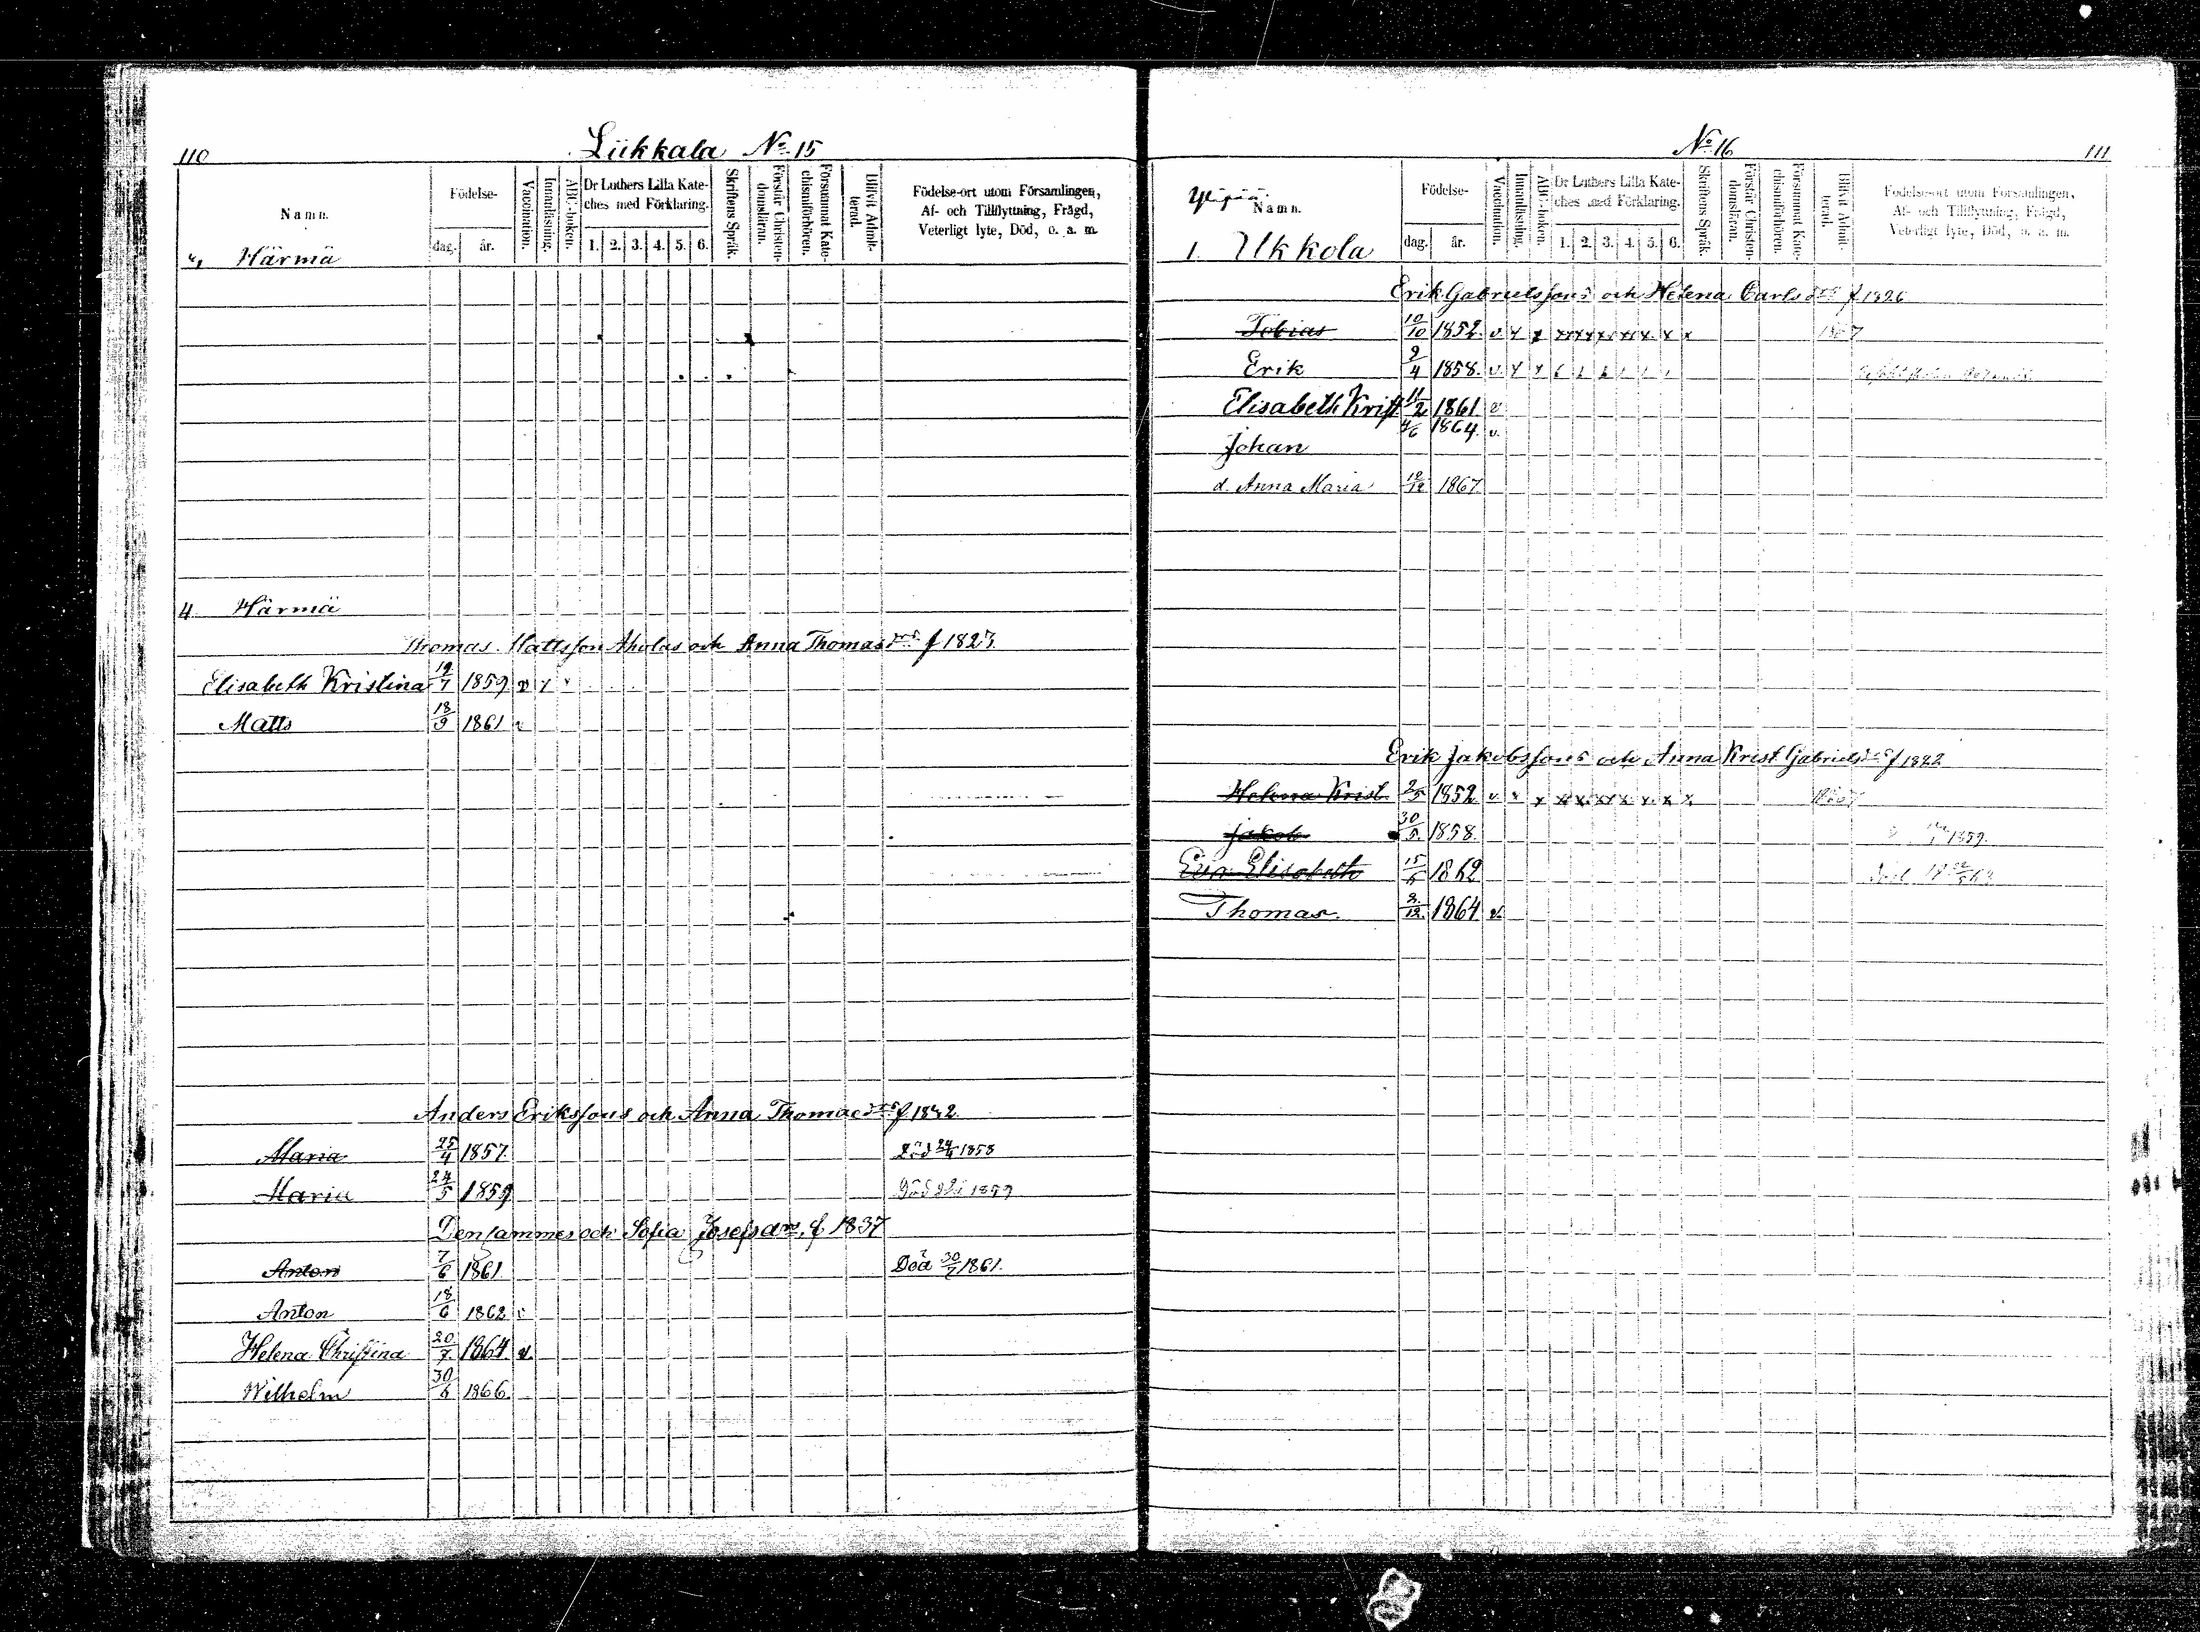 110
Liikkala No 15
Namn.
Födelse-
dag.
år.
Vaccination.
Innanläsning.
ABC-boken.
Dr Luthers Lilla Kate-
ches med Förklaring.
1. 2. 3. 4. 5. 6.
Skriftens Språk.
Förstår Christen-
domsläran.
Försummat Kate-
chismiförhören.
Blifvit Admit-
terad.
Födelse-ort utom Församlingen,
Af- och Tillflyttning, Frägd,
Veterligt lyte, Död, o. a. m.
Härmä
4. Härmä
Thomas Mattsson Aholas och Anna Thomasdrs f 1823
Elisabeth Kristina 19/7 1859 v x
Matts 18/9 1861 v
Anders Erikssons och Anna Thomasdrs f 1842
Maria 25/4 1857 Död 1858
Maria 24/5 1859 Död 1859
Densammes och Sofia Josefsdrs f 1837
Anton 7/6 1861 Död 30/7 1861.
Anton 18/6 1862 v
Helena Christina 20/7 1864 v.
Wilhelm 30/6 1866
No 16
111
Namn.
1. Ukkola
Födelse-
dag.
år.
Vaccination.
Innanläsning.
ABC-boken.
Dr Luthers Lilla Kate-
ches med Förklaring.
1. 2. 3. 4. 5. 6.
Skriftens Språk.
Förstår Christen-
domsläran.
Försummat Kate-
chismiförhören.
Blifvit Admit-
terad.
Födelse-ort utom Församlingen,
Af- och Tillflyttning, Frägd,
Veterligt lyte, Död, o. a. m.
Erik Gabrielssons och Helena Carlsdrs f 1826
Tobias 10/10 1852 v x x 1867
Erik 9/4 1858 v x x
Elisabeth Krist 11/2 1861 v
Johan 4/6 1864 v.
d. Anna Maria 12/12 1867
Erik Jakobssons och Anna Krist Gabrielsdrs f 1822
Helena Krist 2/5 1852 v x x
Jakob 30/5 1858. 1859.
Eva Elisabeth 15/5 1862
Thomas. 2/12 1864 v